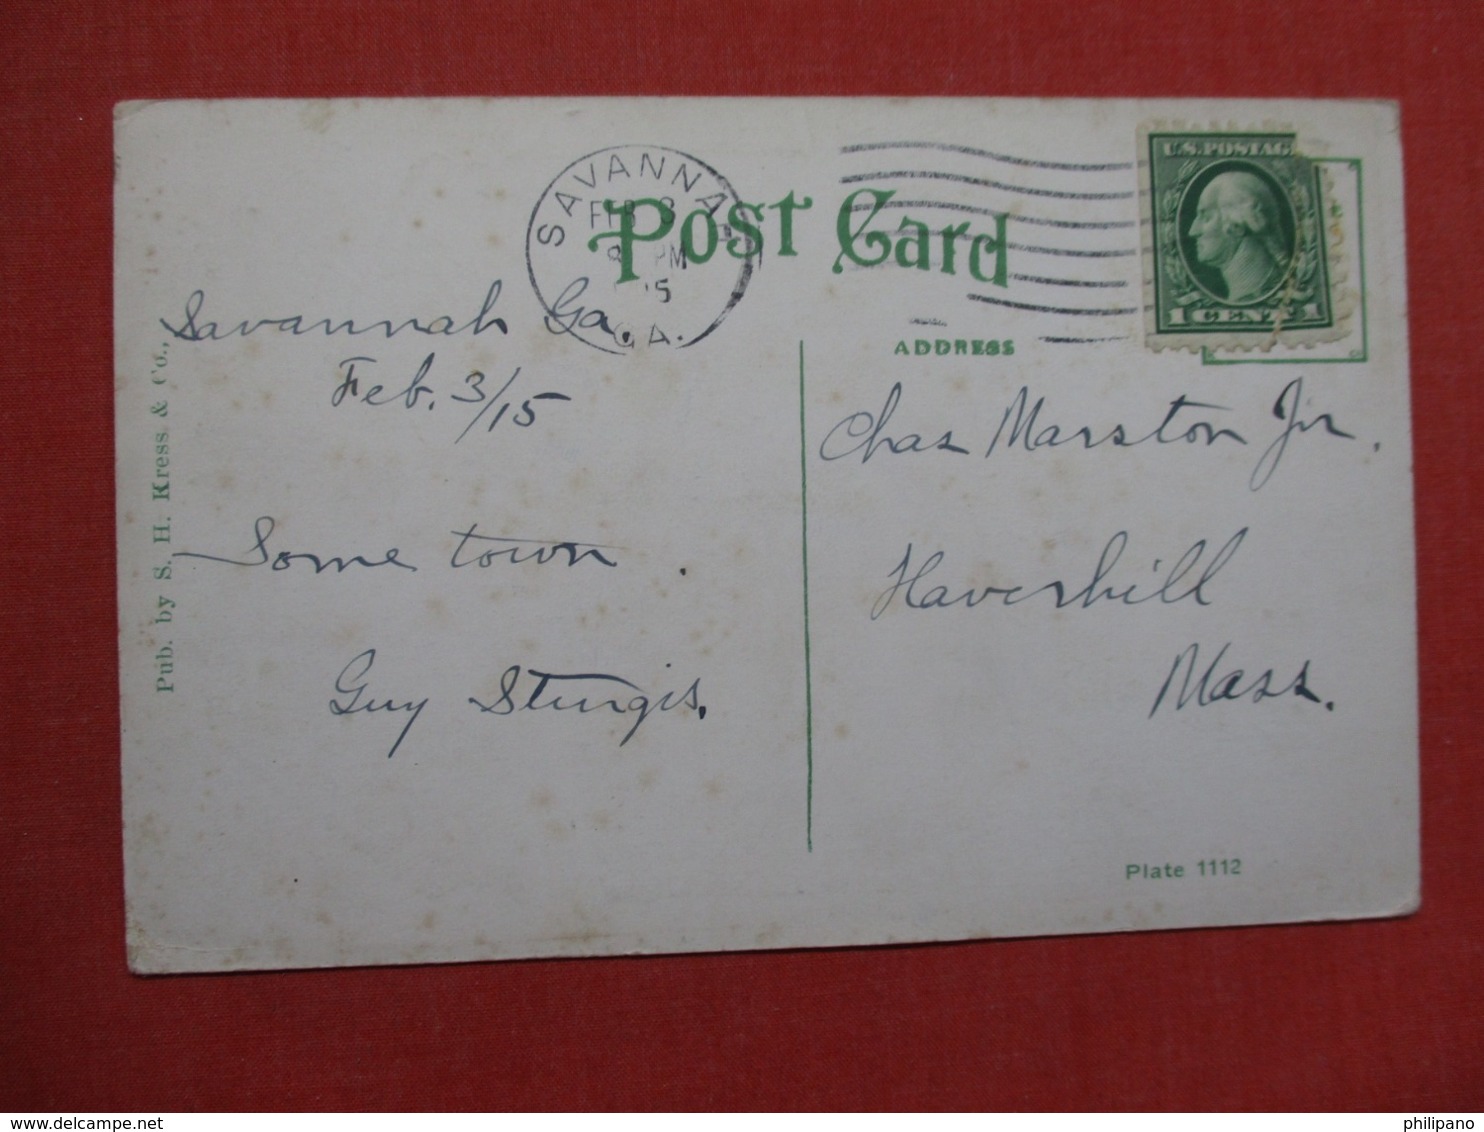 SAVANNAH
FEB 3
8 PM
15
GA.
Post Card
U.S. POSTAG
1 CENT 1
ADDRESS
Savannah Ga.
Feb. 3/15
Some town.
Guy Sturgis.
Chas Marston Jr.
Haverhill
Mass.
Pub. by S. H. Kress & Co.,
Plate 1112
www.delcampe.net
philipano